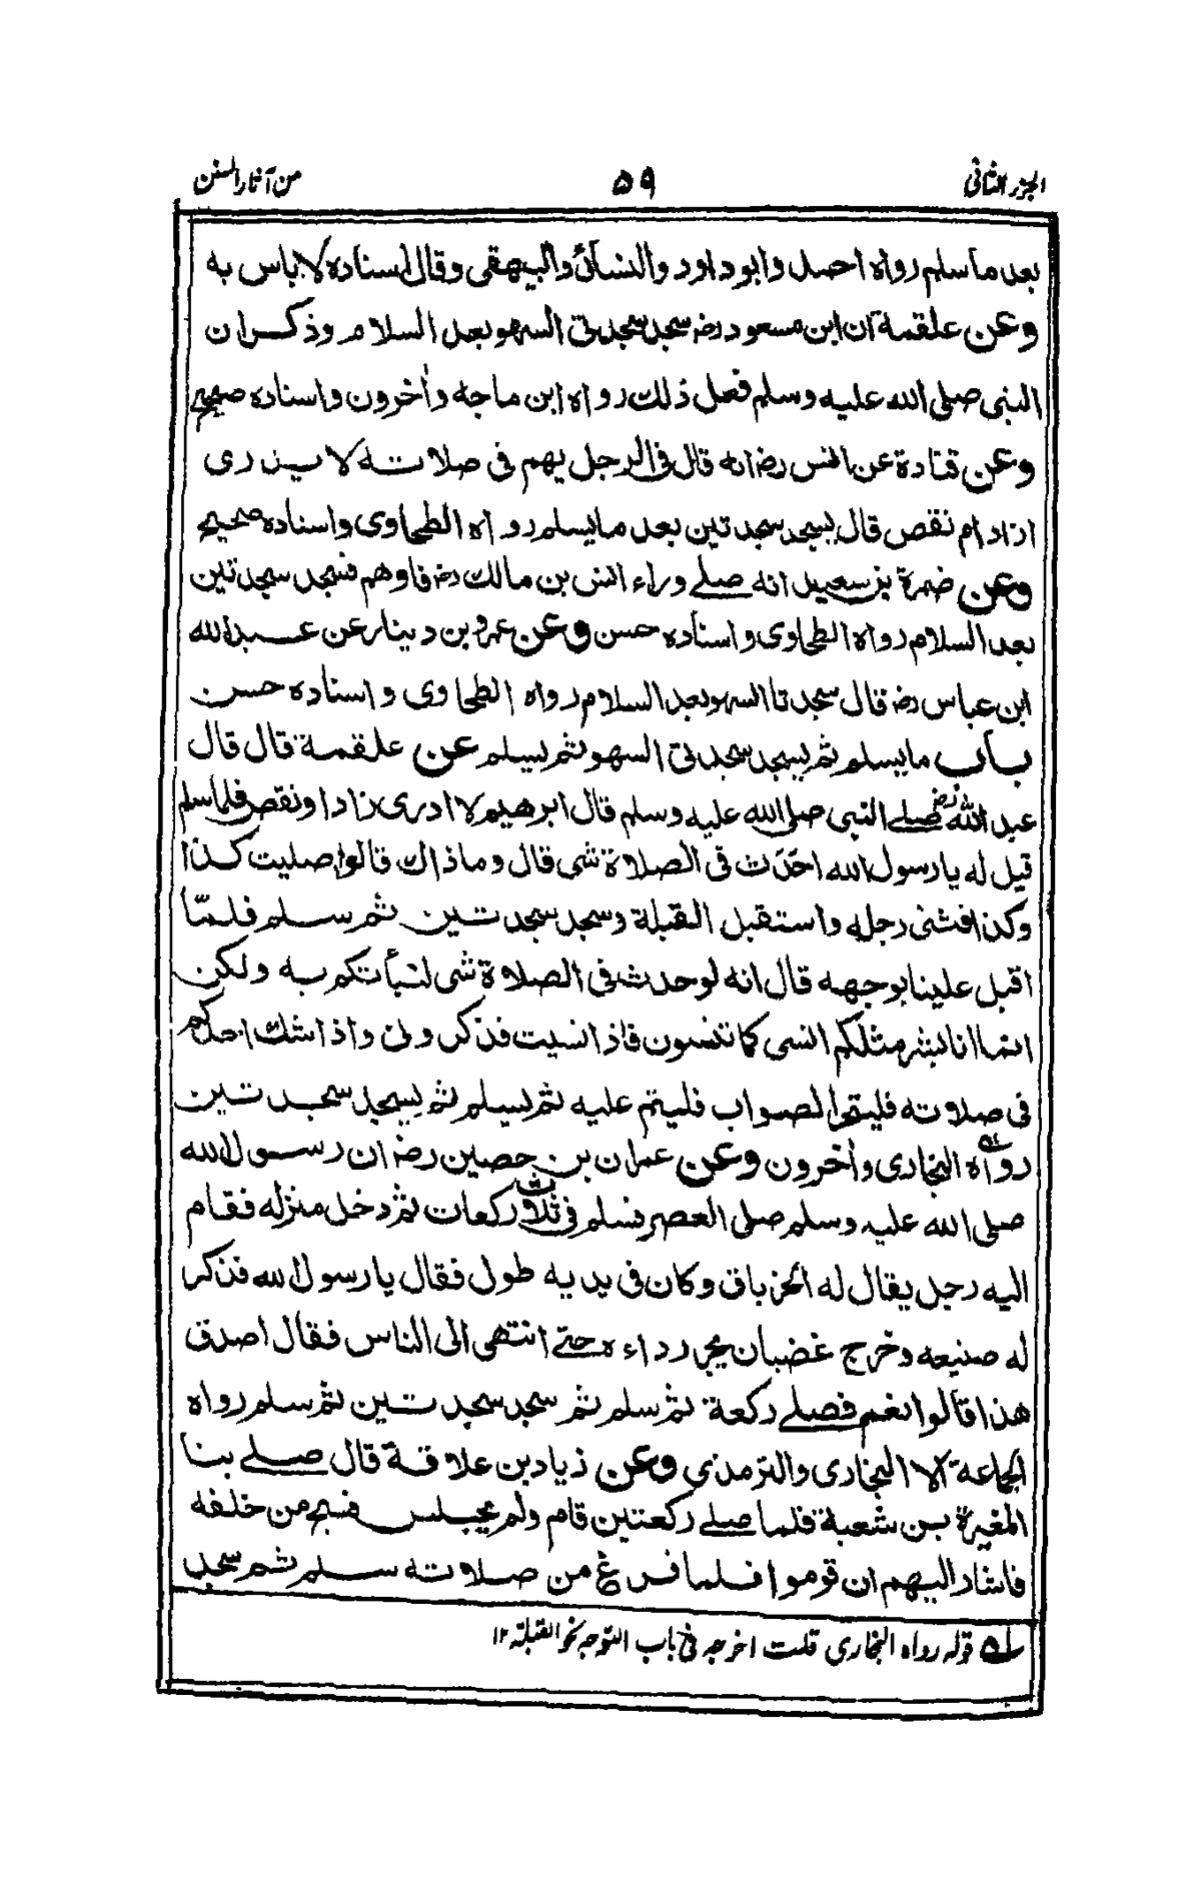 الجزء الثاني ٥٩ من آثار السنن
بعد ما سلم رواه احمد وابو داود والنسائ والبيهقى وقال اسناده لا باس به
وعن علقمة ان ابن مسعود رض سجد سجدتى السهو بعد السلام وذكر ان
النبى صلى الله عليه وسلم فعل ذلك رواه ابن ماجه وأخرون واسناده صحيح
وعن قتادة عن انس رض انه قال فى الرجل يهم فى صلاته لا يدرى
ازاد ام نقص قال يسجد سجدتين بعد ما يسلم رواه الطحاوى واسناده صحيح
وعن ضمرة بن سعيد انه صلے وراء انس بن مالك رض فاوهم فسجد سجدتين
بعد السلام رواه الطحاوى واسناده حسن وعن عمرو بن دينار عن عبد الله
ابن عباس رض قال سجدتا السهو بعد السلام رواه الطحاوى واسناده حسن
باب ما يسلم ثم يسجد سجدتى السهو ثم يسلم عن علقمة قال قال
عبد الله رض صلے النبى صلى الله عليه وسلم قال ابرهيم لا ادرى زاد او نقص فلما سلم
قيل له يا رسول الله احَدَث فى الصلاة شى قال وما ذاك قالوا صليت كذا
وكذا فثنى رجله واستقبل القبلة وسجد سجدتين ثم سلم فلمّا
اقبل علينا بوجهه قال انه لو حدث فى الصلاة شى لنبأتكم به ولكن
انما انا بشر مثلكم انسى كما تنسون فاذا نسيت فذكرونى واذا شك احدكم
فى صلاته فليتحر الصواب فليتم عليه ثم ليسلم ثم يسجد سجدتين
رواه له البخارى وأخرون وعن عمران بن حصين رض ان رسول الله
صلى الله عليه وسلم صلى العصر فسلم فى ثلاث ركعات ثم دخل منزله فقام
اليه رجل يقال له الخرباق وكان فى يديه طول فقال يا رسول الله فذكر
له صنيعه وخرج غضبان يجر رداءه حتے انتهى الى الناس فقال اصدق
هذا قالوا نعم فصلے ركعة ثم سلم ثم سجد سجدتين ثم سلم رواه
الجماعة الا البخارى والترمذى وعن زياد بن علاقة قال صلے بنا
المغيرة بن شعبة فلما صلے ركعتين قام ولم يجلس فسبح من خلفه
فاشار اليهم ان قوموا فلما فرغ من صلاته سلم ثم سجد
له قوله رواه البخاري قلت اخرجه فى باب التوجه نحو القبلة ١٢